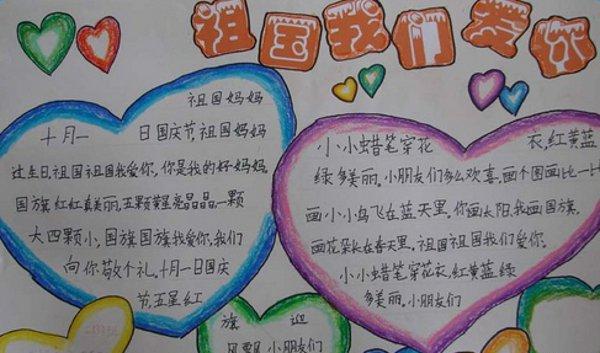 祖国我们爱你
祖国妈妈
十月一 日国庆节,祖国妈妈
过生日,祖国祖国我爱你,你是我的好妈妈,
国旗红红真美丽,五颗黄星亮晶晶,一颗
大四颗小,国旗国旗我爱你,我们
向你敬个礼,十月一日国庆
节,五星红
旗 迎
风飘,小朋友们
小小蜡笔穿花 衣,红黄蓝
绿多美丽。小朋友们多么欢喜,画个图画比一比
画小小鸟飞在蓝天里,你画长阳,我画国旗,
画花朵长在春天里。祖国祖国我们爱你。
小小蜡笔穿花衣,红黄蓝绿
多美丽。小朋友们